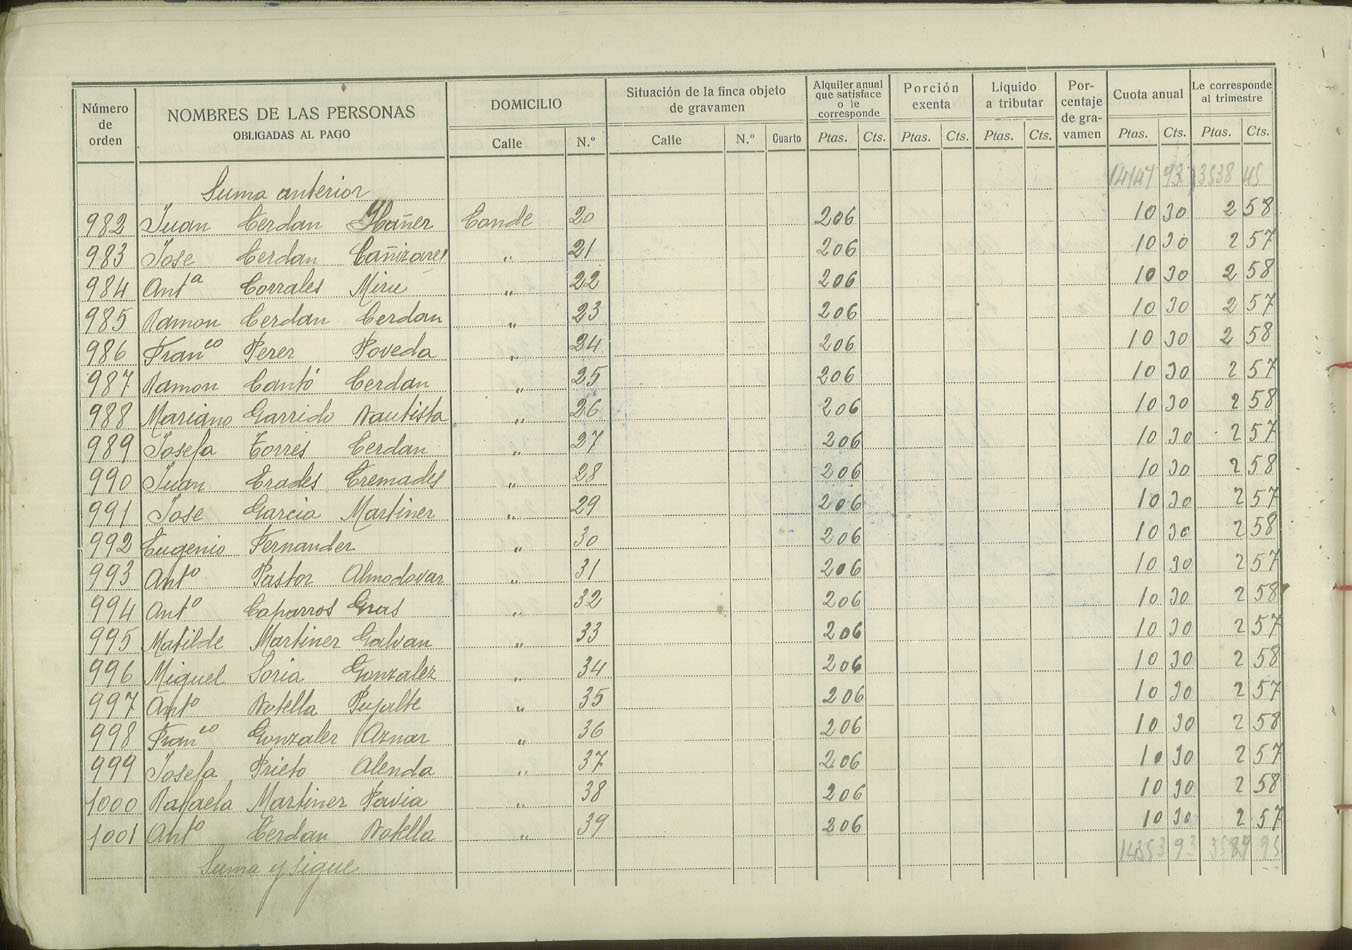 Número de orden NOMBRES DE LAS PERSONAS OBLIGADAS AL PAGO DOMICILIO Situación de la finca objeto de gravamen Alquiler anual que satisface o le corresponde Porción exenta Líquido a tributar Por-centaje de gra-vamen Cuota anual Le corresponde al trimestre
Calle N.º Calle N.º Cuarto Ptas. Cts. Ptas. Cts. Ptas. Cts. Ptas. Cts. Ptas. Cts.
Suma anterior 14147 93 3538 45
982 Juan Cerdan Ybañer Conde 20 206 10 30 2 58
983 Jose Cerdan Cañizares " 21 206 10 30 2 57
984 Antª Corrales Mire " 22 206 10 30 2 58
985 Ramon Cerdan Cerdan " 23 206 10 30 2 57
986 Franco Perer Poveda " 24 206 10 30 2 58
987 Ramon Cantó Cerdan " 25 206 10 30 2 57
988 Mariano Garrido Bautista " 26 206 10 30 2 58
989 Josefa Torres Cerdan " 27 206 10 30 2 57
990 Juan Erades Cremades " 28 206 10 30 2 58
991 Jose Garcia Martiner " 29 206 10 30 2 57
992 Eugenio Fernander " 30 206 10 30 2 58
993 Antº Pastor Almodovar " 31 206 10 30 2 57
994 Antº Caparros Gras " 32 206 10 30 2 58
995 Matilde Martiner Galvan " 33 206 10 30 2 57
996 Miguel Soria Gonzalez " 34 206 10 30 2 58
997 Antº Botella Pujalte " 35 206 10 30 2 57
998 Franco Gonzaler Aznar " 36 206 10 30 2 58
999 Josefa Prieto Alenda " 37 206 10 30 2 57
1000 Rafaela Martiner Pavia " 38 206 10 30 2 58
1001 Antº Cerdan Botella " 39 206 10 30 2 57
Suma y sigue 14353 93 3589 95